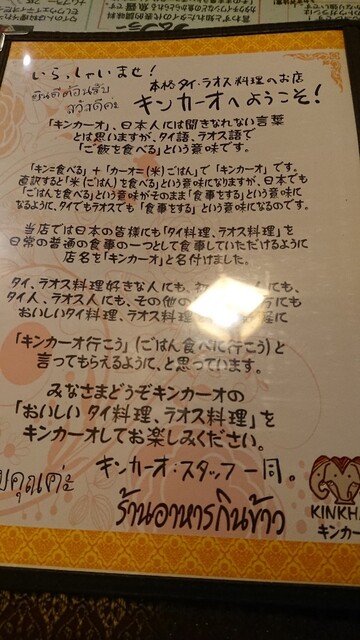 いらっしゃいませ!
ยินดีต้อนรับ
สวัสดีค่ะ
本格タイ・ラオス料理のお店
キンカーオへようこそ!
「キンカーオ」、日本人には聞きなれない言葉
とは思いますが、タイ語、ラオス語で
「ご飯を食べる」という意味です。
「キン=食べる」+「カーオ=(米)ごはん」で「キンカーオ」です。
直訳すると「米(ごはん)を食べる」という意味になりますが、日本でも
「ごはんを食べる」という意味がそのまま「食事をする」という意味に
なるように、タイでもラオスでも「食事をする」という意味になるのです。
当店では日本の皆様にも「タイ料理、ラオス料理」を
日常の普通の食事の一つとして食事していただけるように
店名を「キンカーオ」と名付けました。
タイ、ラオス料理好きな人にも、
タイ人、ラオス人にも、その他の にも
おいしいタイ料理、ラオス料理 に
「キンカーオ行こう」(ごはん食べに行こう)と
言ってもらえるように、と思っています。
みなさまどうぞキンカーオの
「おいしい タイ料理、ラオス料理」を
キンカーオしてお楽しみください。
キンカーオ:スタッフ一同。
บคุณค่ะ
ร้านอาหารกินข้าว
KINKH
キンカー